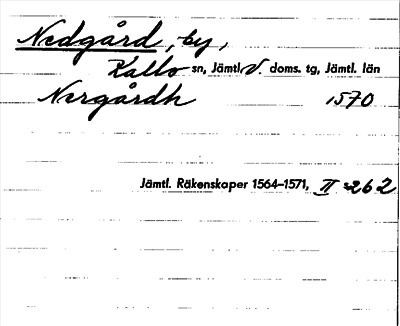 Nedgård, by,
Kalls sn, Jämtl. V. doms. tg, Jämtl. län
Nergårdh 1570
Jämtl. Räkenskaper 1564–1571, II s. 262